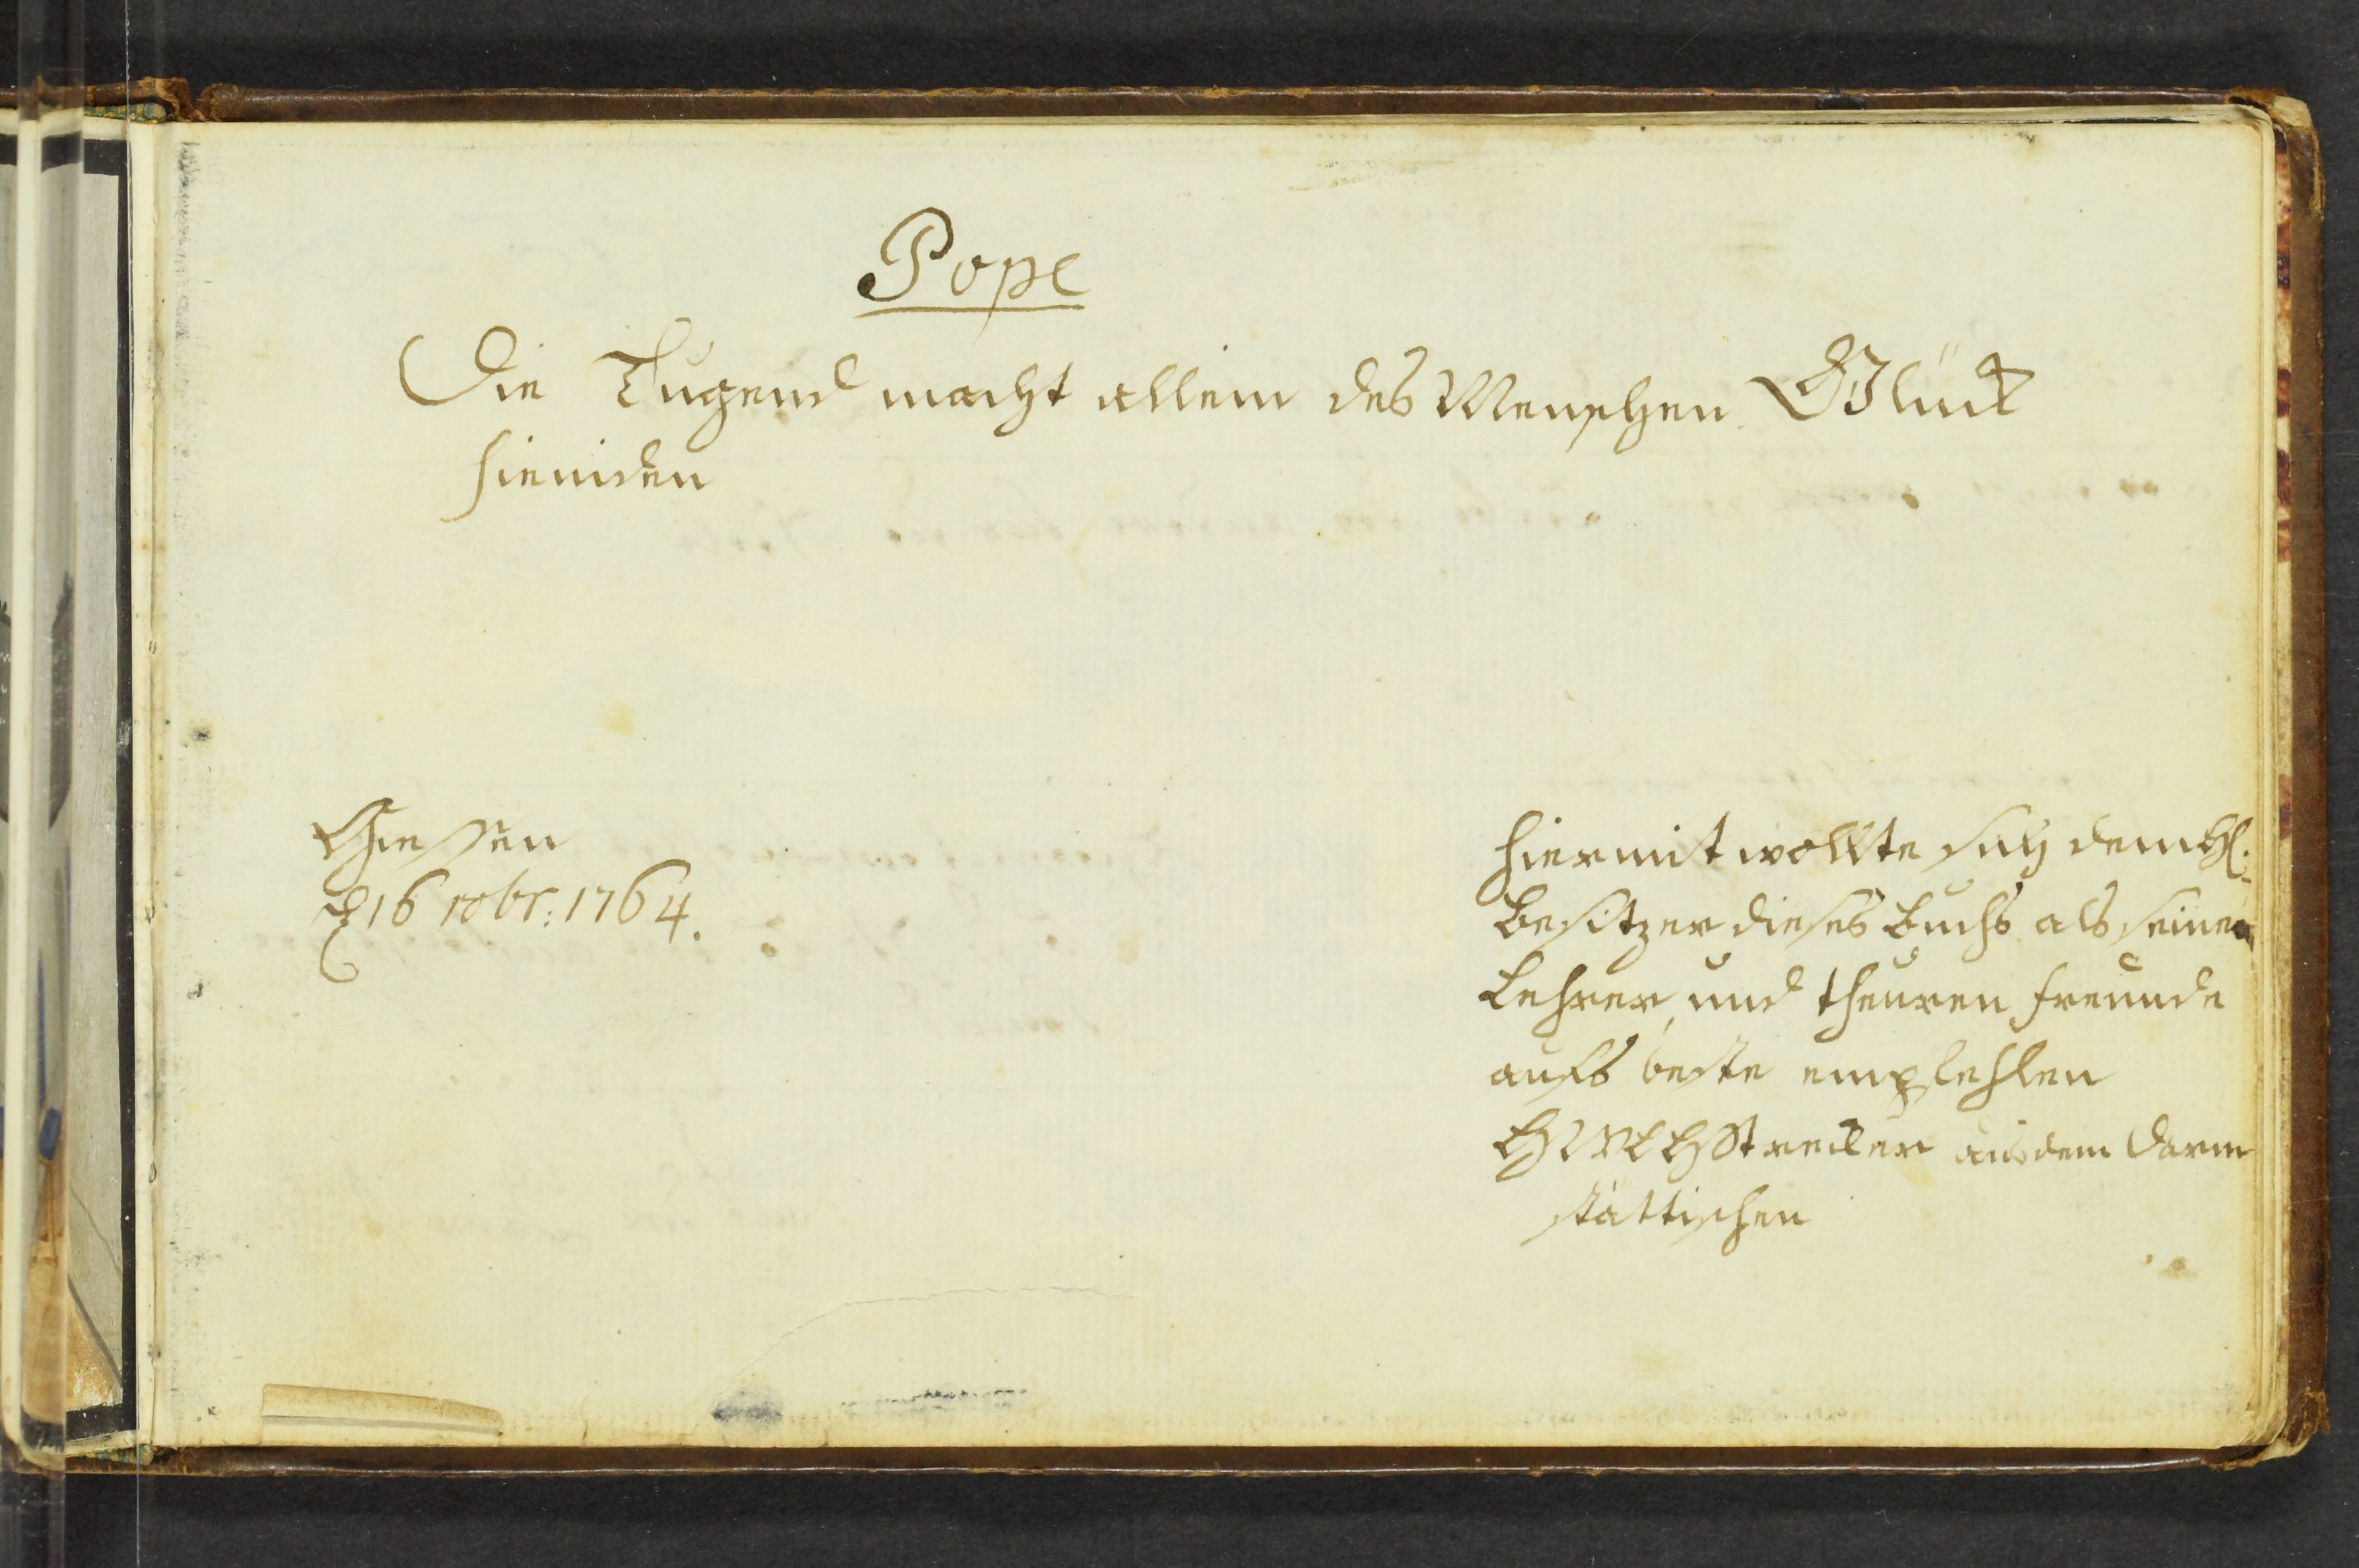 Pope
Die Tugend macht allein des Menschen Glück
hieniden
Giessen
d 16 robr: 1764.
Hiermit wollte sich dem H.
Besitzer dieses Buchs als seinen
Lehrer und theuren Freunde
aufs beste empfehlen
Strecker aus dem Darm
stättischen